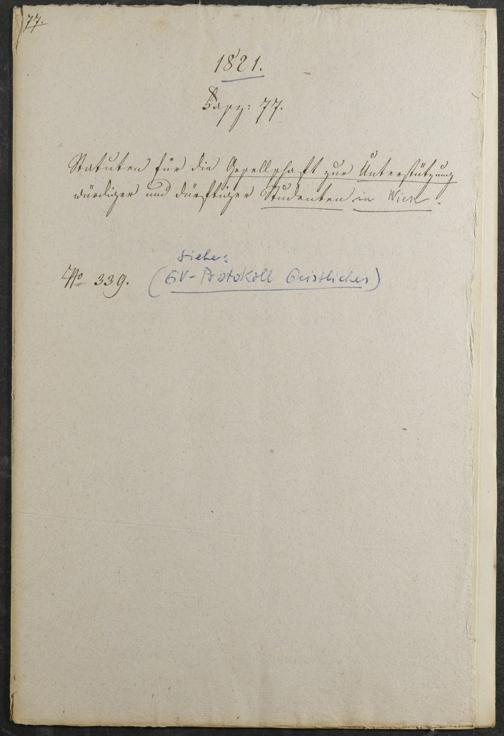 77.
1821.
Fasz: 77.
Statuten für die Gesellschaft zur Unterstützung
würdiger und dürftiger Studenten in Wien.
Siehe:
No 339. (GV-Protokoll Geistliches)